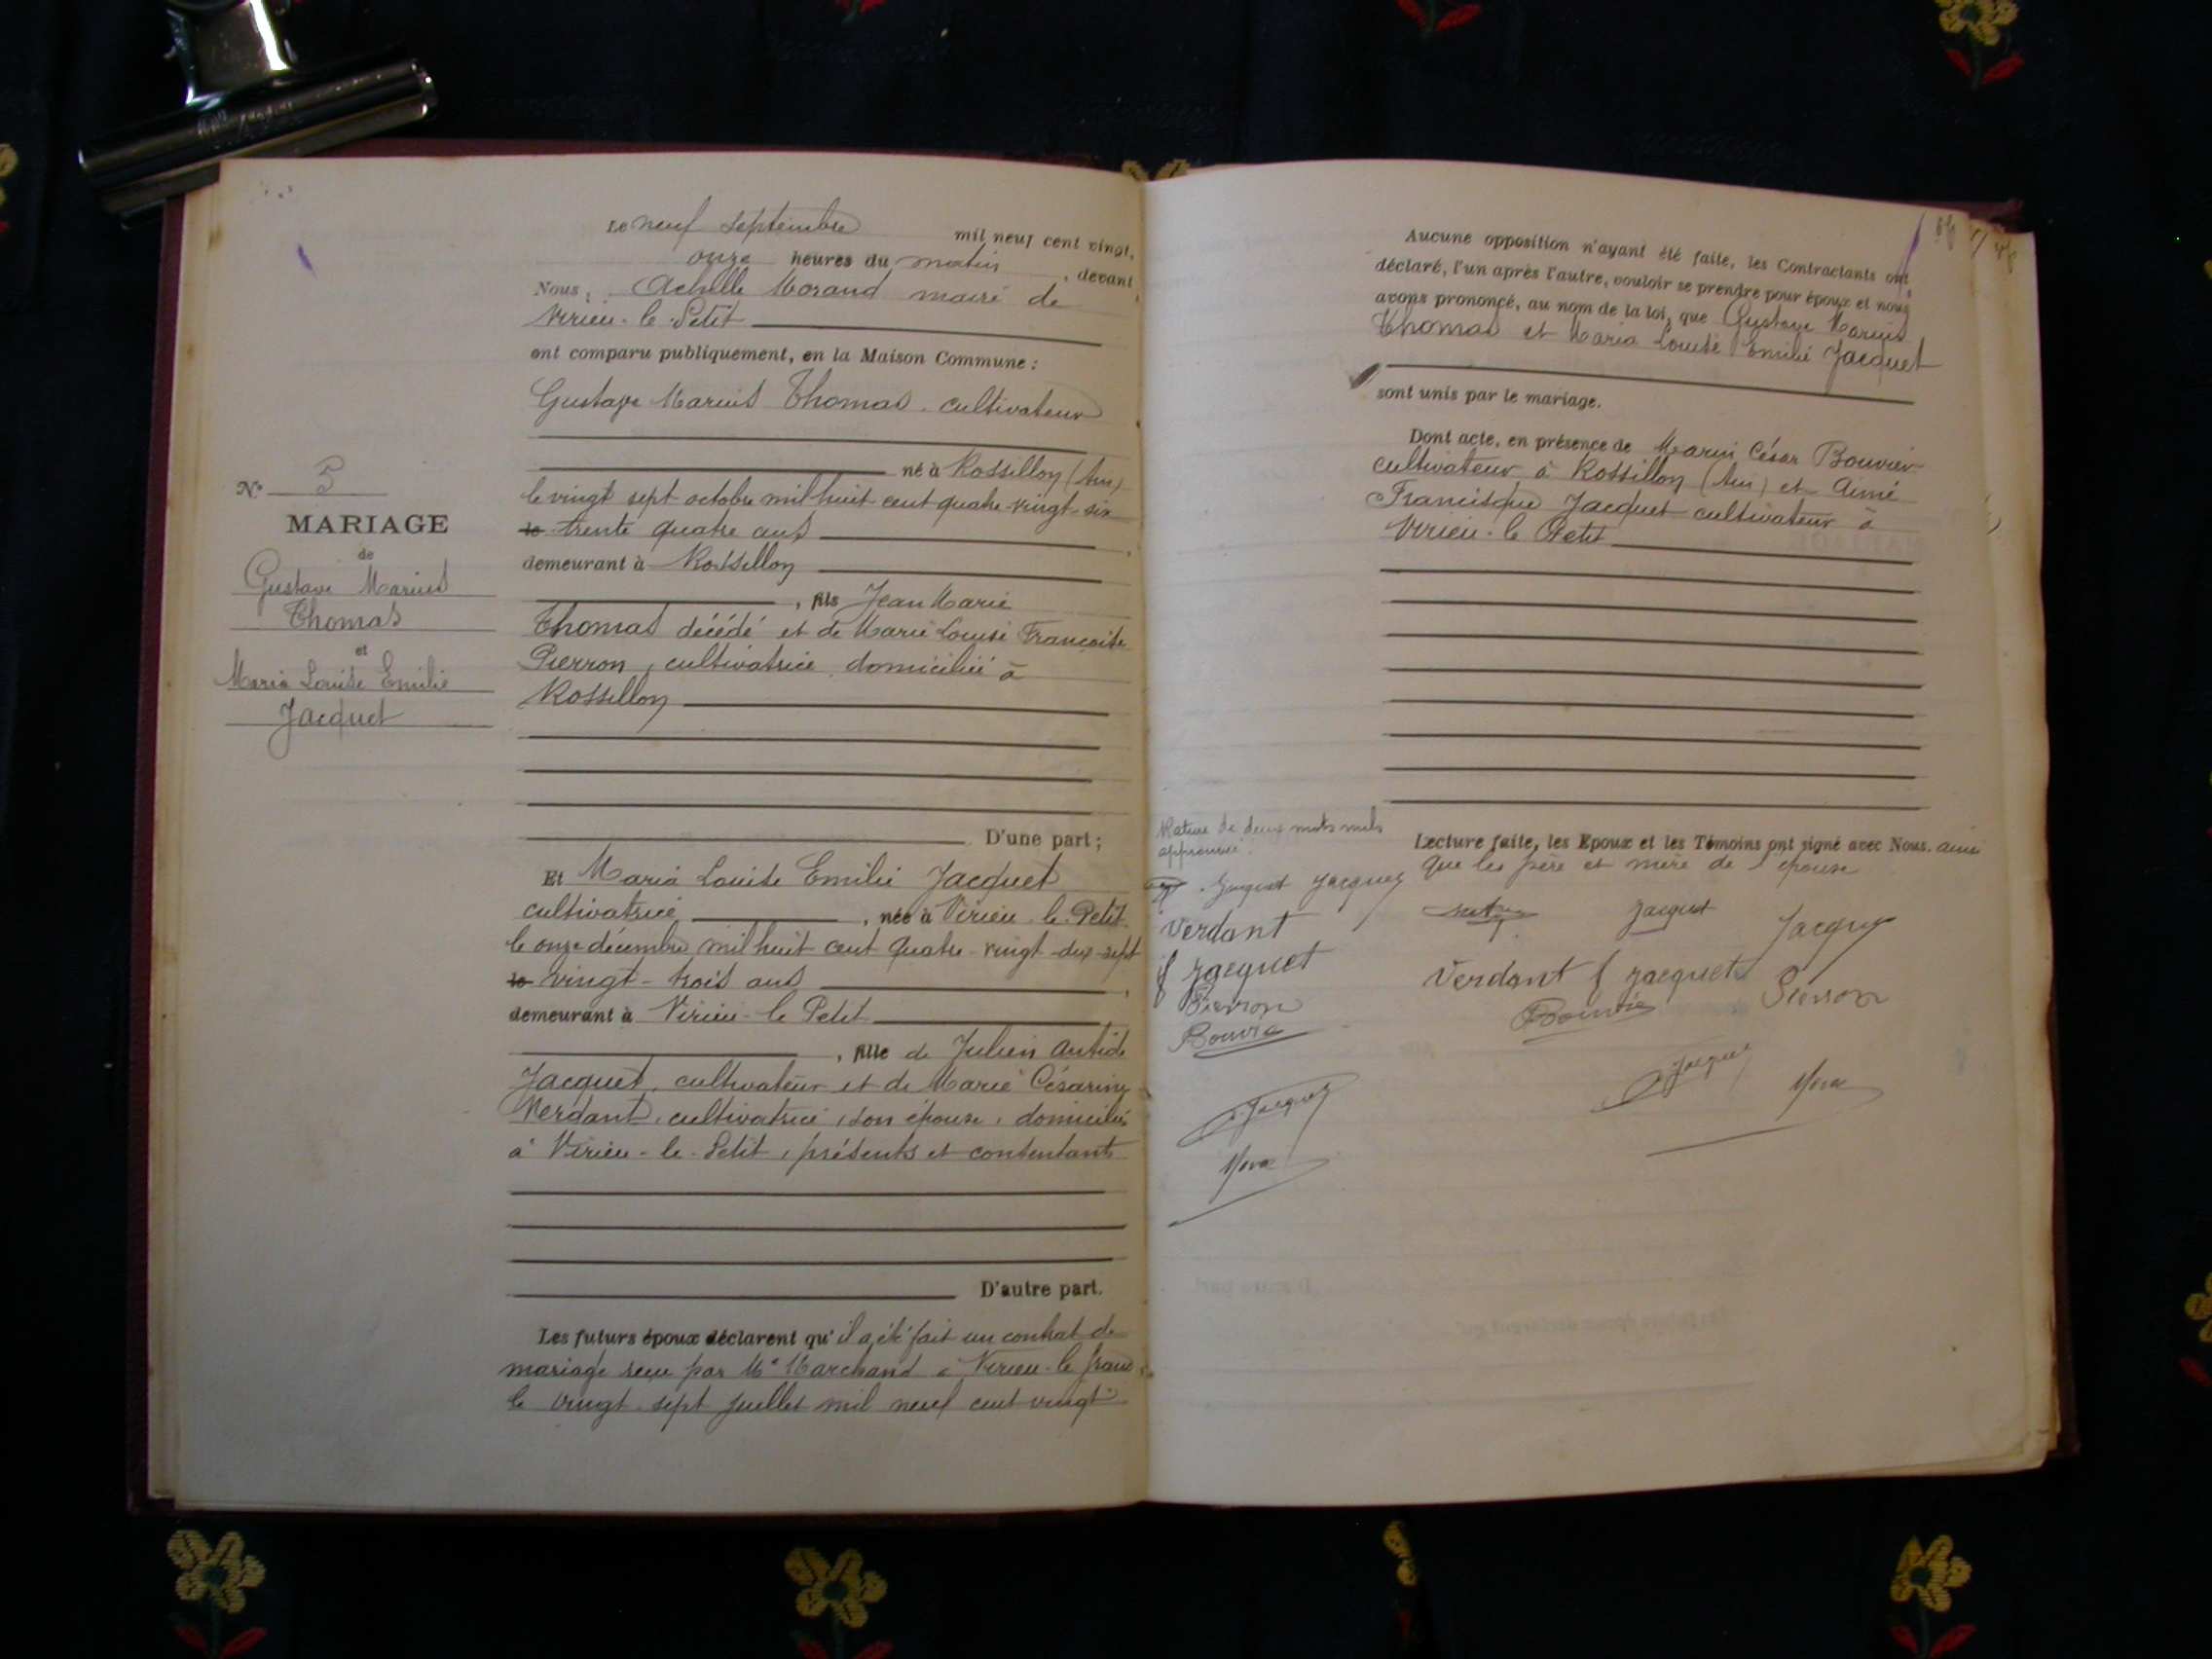 Le neuf septembre mil neuf cent vingt,
onze heures du matin, devant
Nous, Achille Morand maire de
Virieu-le-Petit
ont comparu publiquement, en la Maison Commune :
Gustave Marius Thomas, cultivateur
né à Rossillon (Ain)
le vingt sept octobre mil huit cent quatre-vingt-six
le trente quatre ans
demeurant à Rossillon
, fils Jean Marie
Thomas décédé et de Marie Louise Françoise
Pierron, cultivatrice, domiciliée à
Rossillon
D'une part ;
N° 5
MARIAGE
de
Gustave Marius
Thomas
et
Maria Louise Emilie
Jacquet
Et Maria Louise Emilie Jacquet
cultivatrice, née à Virieu-le-Petit
le onze décembre mil huit cent quatre-vingt-dix-sept
le vingt-trois ans
demeurant à Virieu-le Petit
, fille de Julien Antide
Jacquet, cultivateur et de Marie Césarine
Verdant, cultivatrice, son épouse, domiciliés
à Virieu-le-Petit, présents et consentants
D'autre part.
Les futurs époux déclarent qu'il a été fait un contrat de
mariage reçu par Me Marchand à Virieu-le-Grand
le vingt-sept juillet mil neuf cent vingt
Aucune opposition n'ayant été faite, les Contractants ont
déclaré, l'un après l'autre, vouloir se prendre pour époux et nous
avons prononcé, au nom de la loi, que Gustave Marius
Thomas et Maria Louise Emilie Jacquet
sont unis par le mariage.
Dont acte, en présence de Marin César Bouvier
cultivateur à Rossillon (Ain) et Aimé
Francisque Jacquet cultivateur à
Virieu-le Petit
Rature de deux mots nuls
approuvée.
Lecture faite, les Epoux et les Témoins ont signé avec Nous. ainsi
que les père et mère de l'épouse
Jacquet Jacquet
Verdant
f Jacquet
Pierron
Bouvie
Jacquet
Mora
Jacquet Jacquet
Verdant f Jacquet Pierron
Bouvie
Jacquet Mora